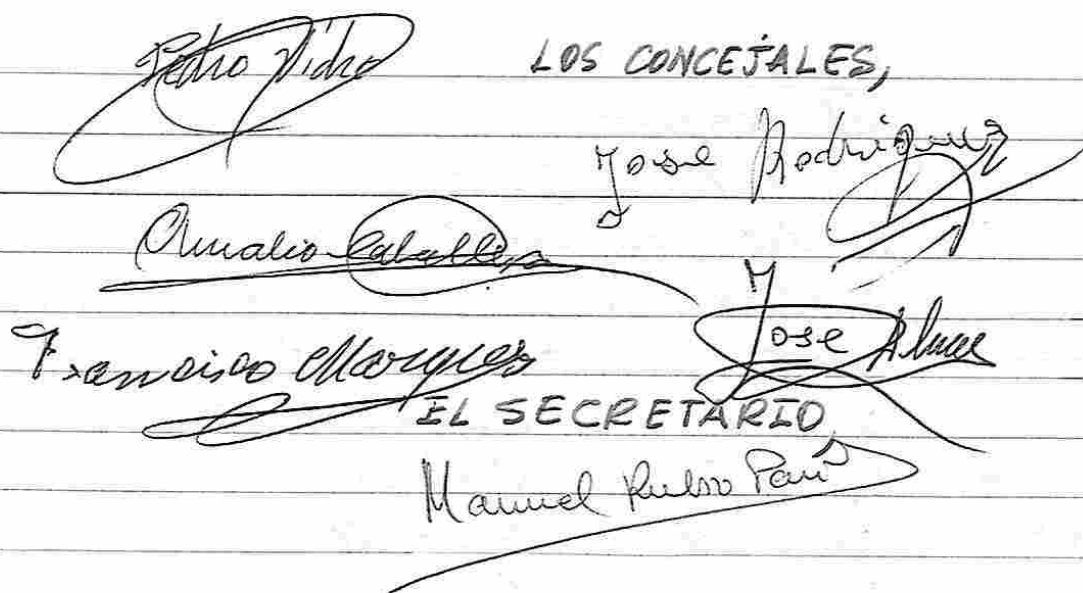 Pedro
LOS CONCEJALES,
Jose Rodriguez
Caballero
Jose
Francisco Marques
EL SECRETARIO
Manuel Rubio